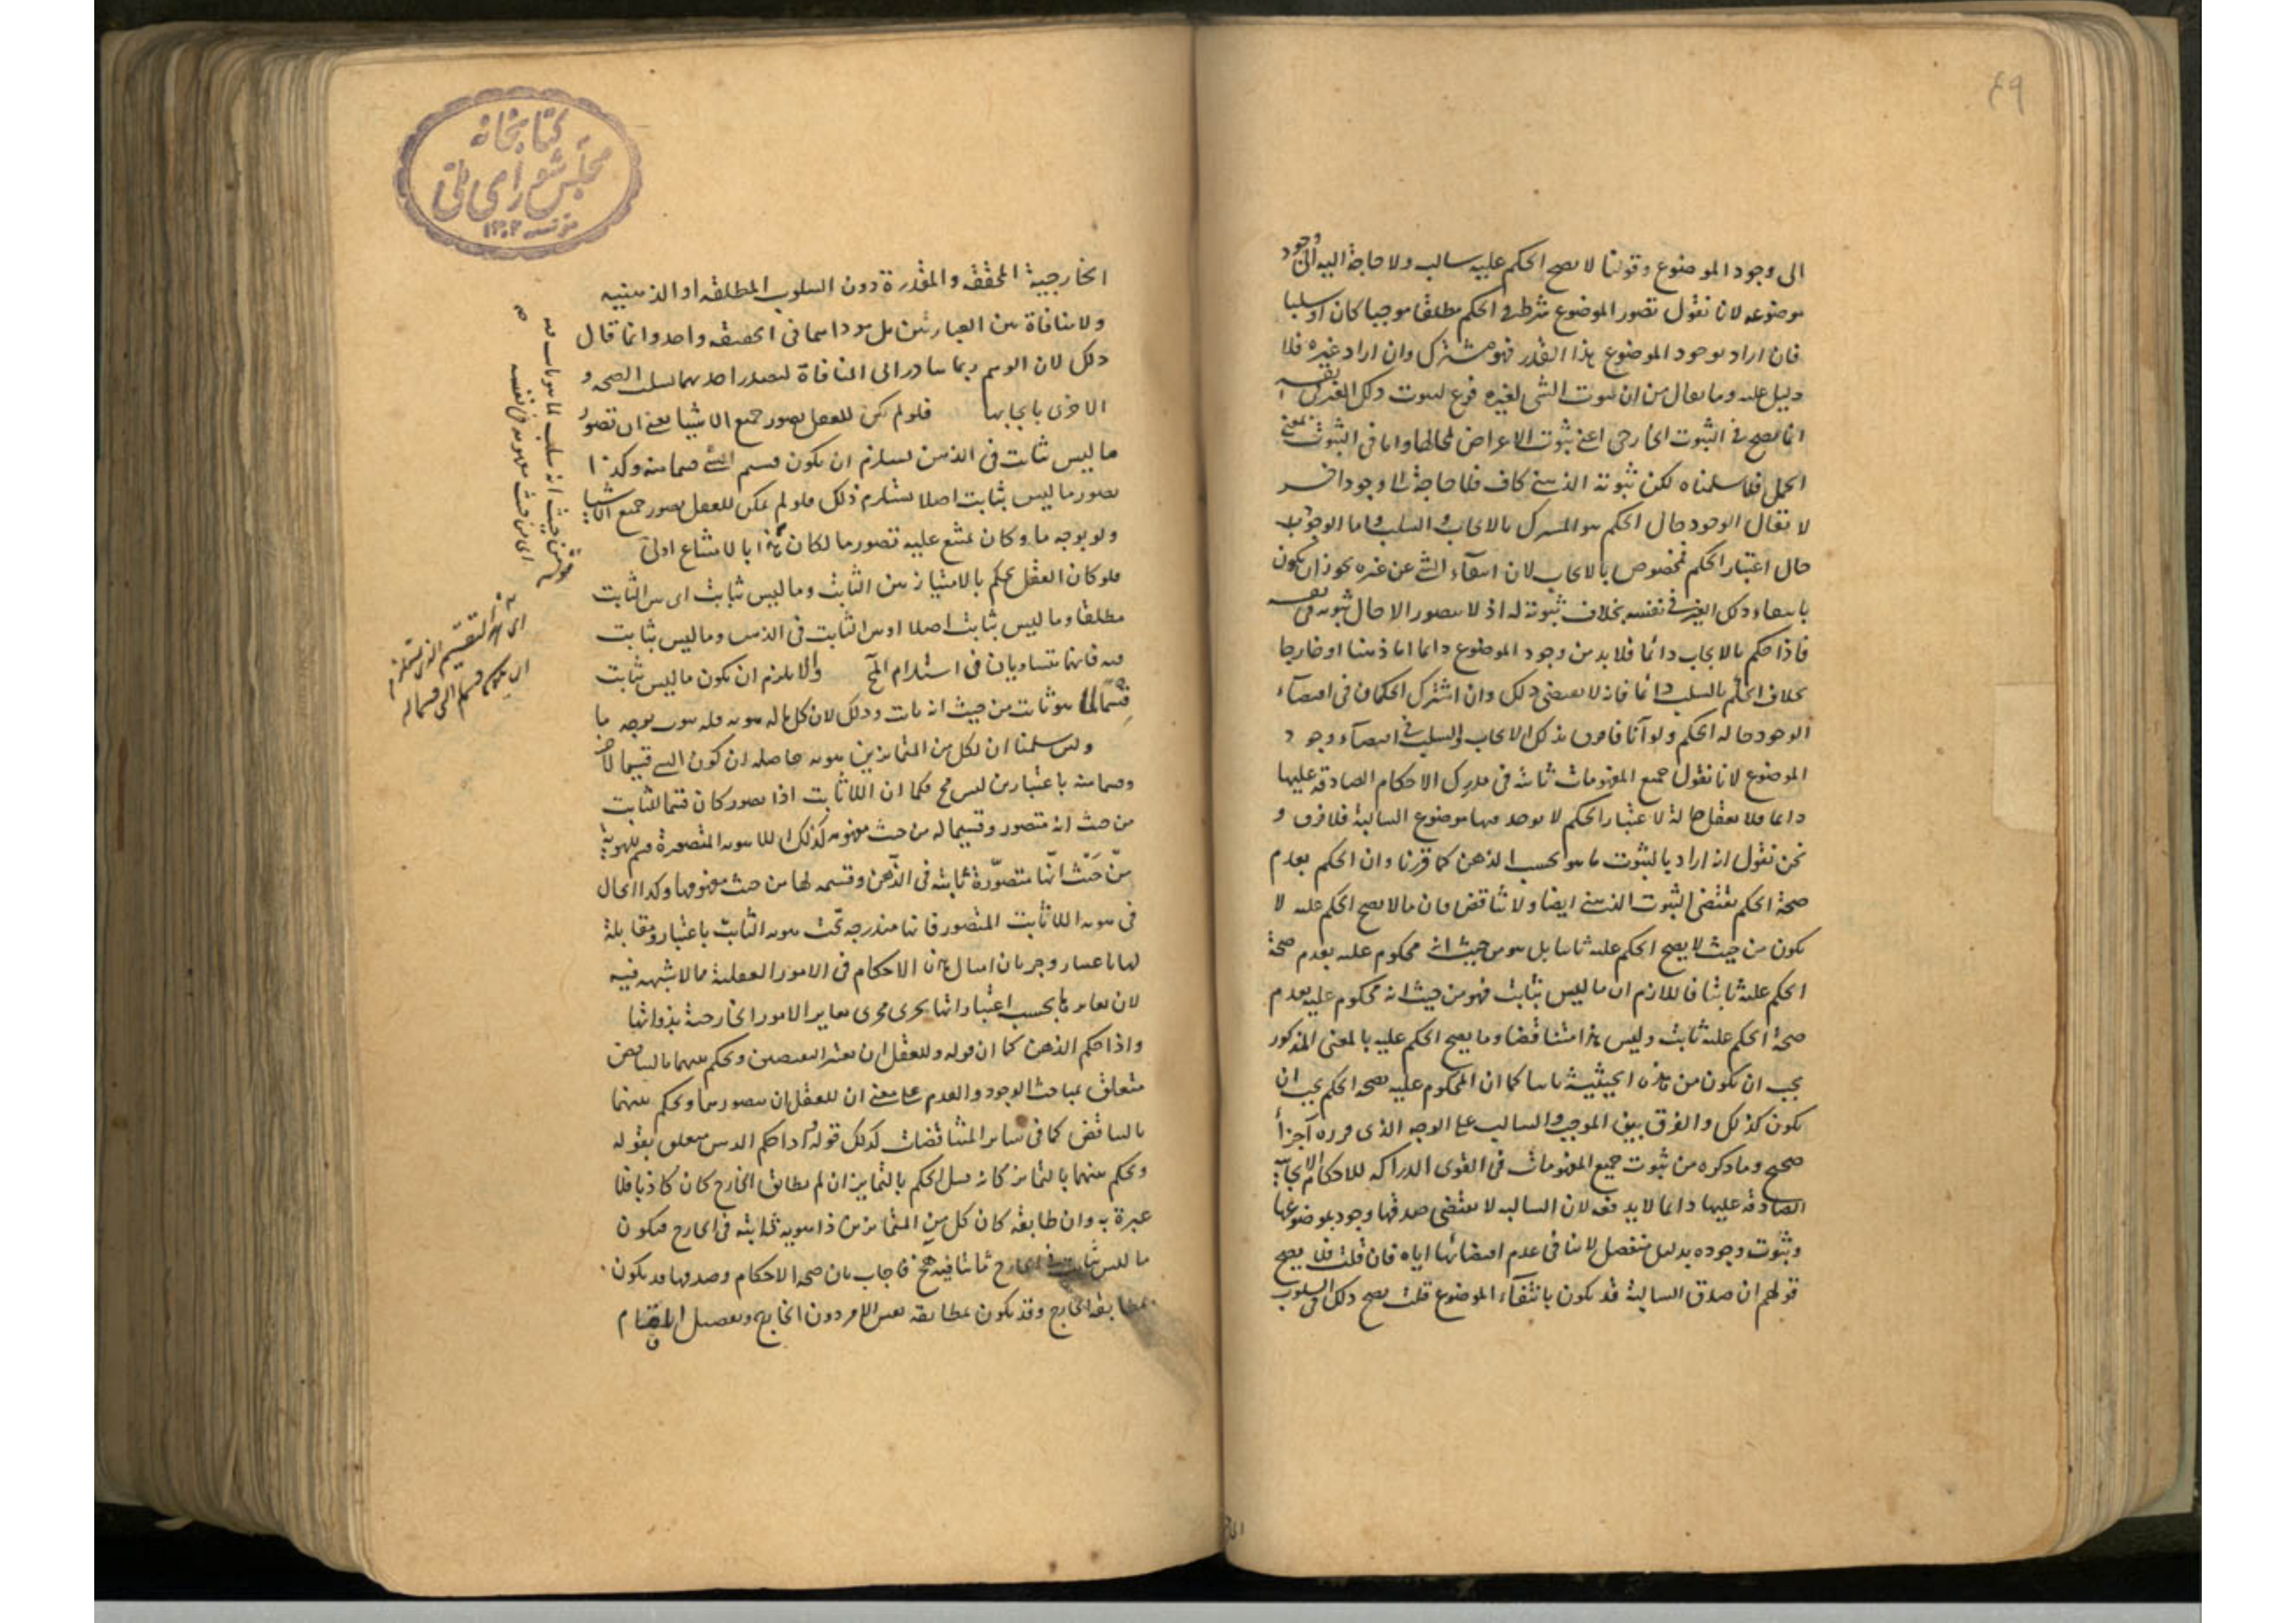 ٤٩
الى وجود الموضوع وقولنا لا يصح الحكم عليه سالب ولا حاجة اليه الى وجود
موضوعه لانا نقول تصور الموضوع شرط في الحكم مطلقا موجبا كان او سلبا
فان اراد بوجود الموضوع هذا القدر فهو مشترك وان اراد غيره فلا
دليل عليه وما يقال من ان ثبوت الشي لغيره فرع لثبوت ذلك الغير في نفسه
انما يصح في الثبوت الخارجي اعني ثبوت الاعراض لمحالها واما في الثبوت بمعنى
الحمل فلا سلمناه لكن ثبوته الذهني كاف فلا حاجة الى وجود اخر
لا يقال الوجود حال الحكم هو المشترك بالايجاب والسلب واما الوجود
حال اعتبار الحكم فمخصوص بالايجاب لان انتفاء الشي عن غيره يجوز ان يكون
بانتفاء ذلك الغير في نفسه بخلاف ثبوته له اذ لا يتصور الا حال ثبوته في نفسه
فاذا حكم بالايجاب دائما فلا بد من وجود الموضوع دائما اما ذهنا او خارجا
بخلاف الحكم بالسلب دائما فانه لا يقتضي ذلك وان اشترك الحكمان في اقتضاء
الوجود حالة الحكم ولو آنا فافرق بذلك الايجاب والسلب في اقتضاء وجود
الموضوع لانا نقول جميع المفهومات ثابتة في مدرك الاحكام الصادقة عليها
دائما فلا يعقل حالة لاعتبار الحكم لا يوجد فيها موضوع السالبة فلا فرق و
نحن نقول ان اراد بالثبوت ما هو بحسب الذهن كما قررنا وان الحكم بعدم
صحة الحكم يقتضي الثبوت الذهني ايضا ولا تناقض فان ما لا يصح الحكم عليه لا
يكون من حيث لا يصح الحكم عليه ثابتا بل هو من حيث انه محكوم عليه بعدم صحة
الحكم عليه ثابتا فاللازم ان ما ليس بثابت فهو من حيث انه محكوم عليه بعدم
صحة الحكم عليه ثابت وليس هذا متناقضا وما يصح الحكم عليه بالمعنى المذكور
يجب ان يكون من هذه الحيثية ثابتا كما ان المحكوم عليه بصحة الحكم يجب ان
يكون كذلك والفرق بين الموجب والسالب على الوجه الذي قرره آخرا
صحيح وما ذكره من ثبوت جميع المفهومات في القوى الدراكة للاحكام الايجابية
الصادقة عليها دائما لا يدفعه لان السالبة لا يقتضي صدقها وجود موضوعها
وثبوت وجوده بدليل منفصل لا ينافي عدم اقتضائها اياه فان قلت فلا يصح
قولهم ان صدق السالبة قد يكون بانتفاء الموضوع قلت يصح ذلك في السلوب
كتابخانه
مجلس شورای ملی
الخارجية المحققة والمقدرة دون السلوب المطلقة او الذهنية
ولا منافاة بين العبارتين بل مؤداهما في الحقيقة واحد وانما قال
ذلك لان الوهم ربما يتبادر الى المنافاة لتصدر احديهما بسلب الصحة و
الاخرى بايجابها فلو لم يكن للعقل تصور جميع الاشياء يعني ان تصور
ما ليس ثابت في الذهن يستلزم ان يكون قسيم الشي قسما منه وكذا
تصور ما ليس بثابت اصلا يستلزم ذلك فلو لم يمكن للعقل تصور جميع الاشياء
ولو بوجه ما وكان يمتنع عليه تصور ما لكان هذا بالامتناع اولى
فلو كان العقل يحكم بالامتياز بين الثابت وما ليس ثابت اى بين الثابت
مطلقا وما ليس بثابت اصلا او بين الثابت في الذهن وما ليس بثابت
فيه فانهما متساويان في استلزام المح والا يلزم ان يكون ما ليس ثابت
قسما لما هو ثابت من حيث انه ثابت وذلك لان كل ما له هوية فله هوية بوجه ما
ولئن سلمنا ان لكل من المتمايزين هوية حاصله ان كون الشي قسيما لاخر
وقسما منه باعتبارين ليس مح فكما ان اللاثابت اذا تصور كان قسما للثابت
من حيث انه متصور وقسيما له من حيث مفهومه كذلك اللاهوية المتصورة قسم للهوية
من حيث انها متصورة ثابتة في الذهن وقسيمة لها من حيث مفهومها وكذا الحال
في هوية اللاثابت المتصور فانها مندرجة تحت هوية الثابت باعتبار ومقابلة
لها باعتبار وجريان امثال هذه الاحكام في الامور العقلية مما لا شبهة فيه
لان تغايرها بحسب اعتباراتها يجرى مجرى تغاير الامور الخارجية بذواتها
واذا حكم الذهن كما ان قوله وللعقل ان يعتبر النقيضين ويحكم بينهما بالتناقض
متعلق بمباحث الوجود والعدم على معنى ان للعقل ان يتصورهما ويحكم بينهما
بالتناقض كما في سائر المتناقضات كذلك قوله واذا حكم الذهن متعلق بقوله
ويحكم بينهما بالتمايز كانه قيل الحكم بالتمايز ان لم يطابق الخارج كان كاذبا فلا
عبرة به وان طابقه كان كل من المتمايزين ذا هوية ثابتة في الخارج فيكون
ما ليس ثابت في الخارج ثابتا فيه هف فاجاب بان صحة الاحكام وصدقها قد يكون
بمطابقة الخارج وقد يكون بمطابقة نفس الامر دون الخارج وتفصيل المقام